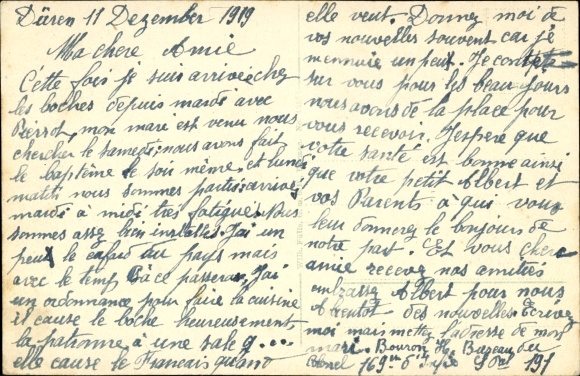 Düren 11 Dezember 1919
Ma chere Amie
Cette fois je suis arrivée chez
les boches depuis mardi avec
Pierrot, mon mari est venu nous
chercher le samedi, nous avons fait
le baptême le soir même, et lundi
matin nous sommes partis arrivés
mardi à midi très fatigués. Nous
sommes assez bien installés. J'ai un
peu le cafard du pays mais
avec le temps ça ce passera, J'ai
un ordonnance pour faire la cuisine
il cause le boche heureusement
la patronne à une sale g....
elle cause le Français quand
elle veut. Donnez moi de
vos nouvelles souvent car je
m'ennuie un peu. Je compte
sur vous pour les beau jours
nous avons de la place pour
vous recevoir. J'espere que
votre santé est bonne ainsi
que votre petit Albert et
vos Parents à qui vous
leur donnerez le bonjour de
notre part. Et vous chere
amie recevez nos amitiés
embrassez Albert pour nous
A bientôt des nouvelles. Ecrivez
moi mais mettez l'adresse de mon
mari. Bouron H. Bureau du
Colonel 169me d'Infie S.P. 191